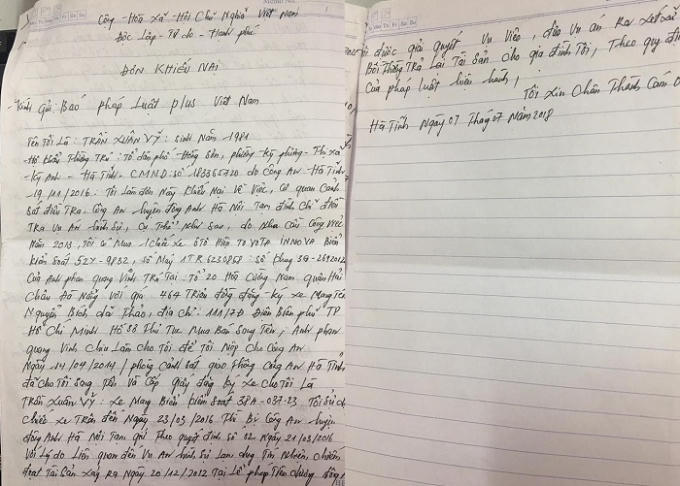 Cộng - Hoà xã - Hội Chủ Nghĩa Việt Nam
Độc Lập - Tự do - Hạnh phúc
ĐƠN KHIẾU NẠI
- Kính gửi Báo pháp Luật plus Việt Nam
Tên Tôi Là : TRẦN XUÂN VỸ : sinh Năm - 1981
Hộ khẩu Thường Trú : Tổ dân phố Hồng Sơn, phường Kỳ phương - Thị xã
- Kỳ Anh - Hà Tĩnh - CMND : số 183365720 do Công An Hà Tĩnh
- 19/11/2016 : Tôi Làm đơn Này Khiếu Nại Về Việc, Cơ quan Cảnh
Sát điều Tra - Công An huyện đông Anh Hà Nội Tạm đình Chỉ điều
Tra Vụ An hình sự, Cụ Thể Như sau, do Nhu Cầu Công Việc
Năm 2013, Tôi Có Mua 1 Chiếc xe ôtô Hiệu ToYoTA INNOVA Biển
kiểm soát 52Y - 9832, số Máy 1TR 6230868 : số khung 3G - 269012
Của Anh phan quang Vinh Trú Tại : Tổ 20 Hoà Cường Nam quận Hải
Châu Đà Nẵng Với giá 464 Triệu đồng đăng ký xe Mang Tên
Nguyễn Bích dã Thảo, địa chỉ : 111/7D Điện Biên phủ TP
Hồ Chí Minh Hồ Sơ Thủ Tục Mua Bán Sang Tên, Anh phan
quang Vinh Chịu Làm Cho Tôi để Tôi Nộp Cho Công An
Ngày 14/04/2014 / phòng Cảnh Sát giao Thông Công An Hà Tĩnh
đã Cho Tôi Sang Tên Và Cấp giấy đăng Ký xe Cho Tôi Là
TRẦN XUÂN VỸ : xe Mang Biển Kiểm soát 38A - 037-23 Tôi Sử
Chiếc xe Trên đến Ngày 23/03/2016 Thì Bị Công An huyện
đông Anh Hà Nội Tạm giữ Theo quyết định số 02 Ngày 21/03/2016
Với Lý do Liên quan đến Vụ An hình Sự Lạm dụng Tín Nhiệm Chiếm
đoạt Tài Sản xảy Ra Ngày 20/12/2012 Tại
được giải quyết Vụ Việc, đưa Vụ án Ra xét xử
Bồi Thường Trả Lại Tài Sản Cho gia đình Tôi, Theo quy
Của pháp luật hiện hành,
Tôi Xin Chân Thành Cám
Hà Tĩnh Ngày 07 Tháng 07 Năm 2018